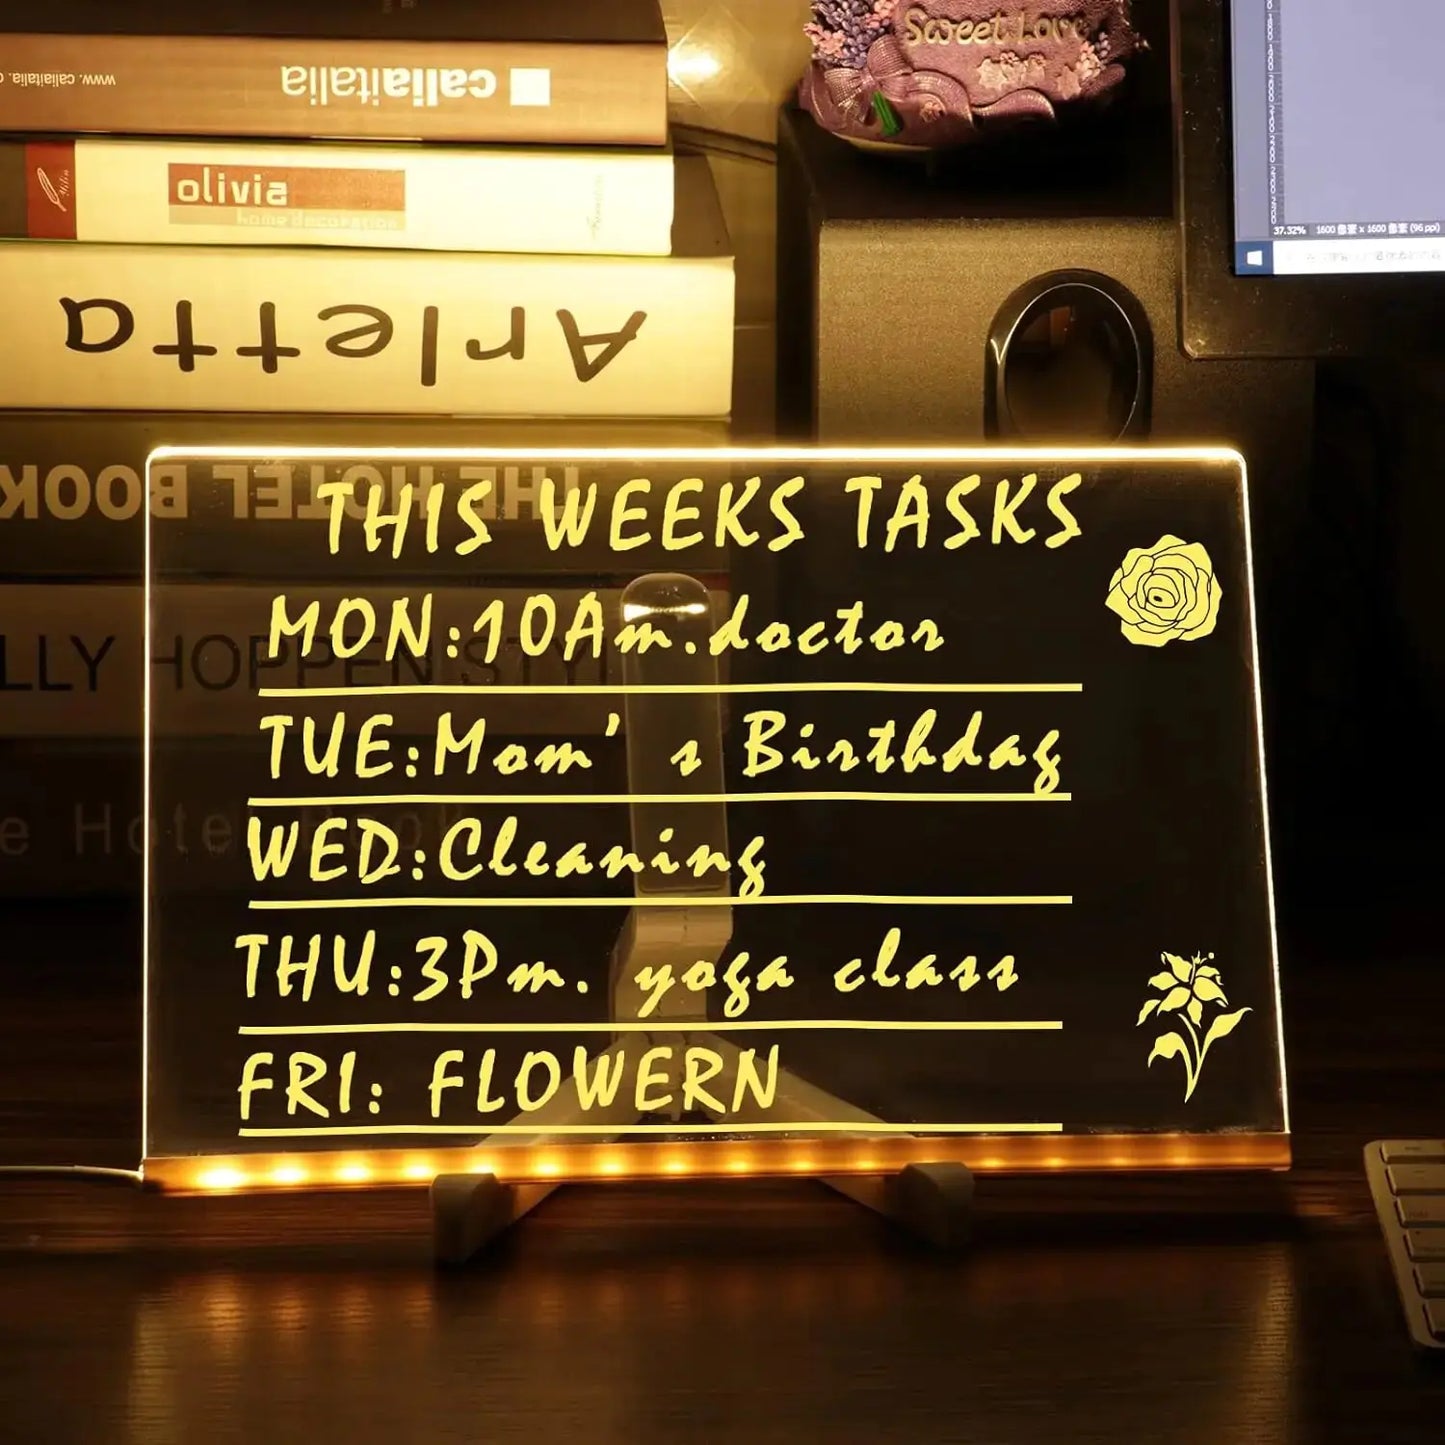 www. caliaitalia.
caliaitalia
olivia
home decoration
Arletta
THE HOTEL BOOK
LLY HOPPEN STYL
e Hotel Book
Sweet Love
37.32% 1600 像素 x 1600 像素 (96 ppi)
THIS WEEKS TASKS
MON:10Am.doctor
TUE:Mom’ s Birthday
WED:Cleaning
THU:3Pm. yoga class
FRI: FLOWERN